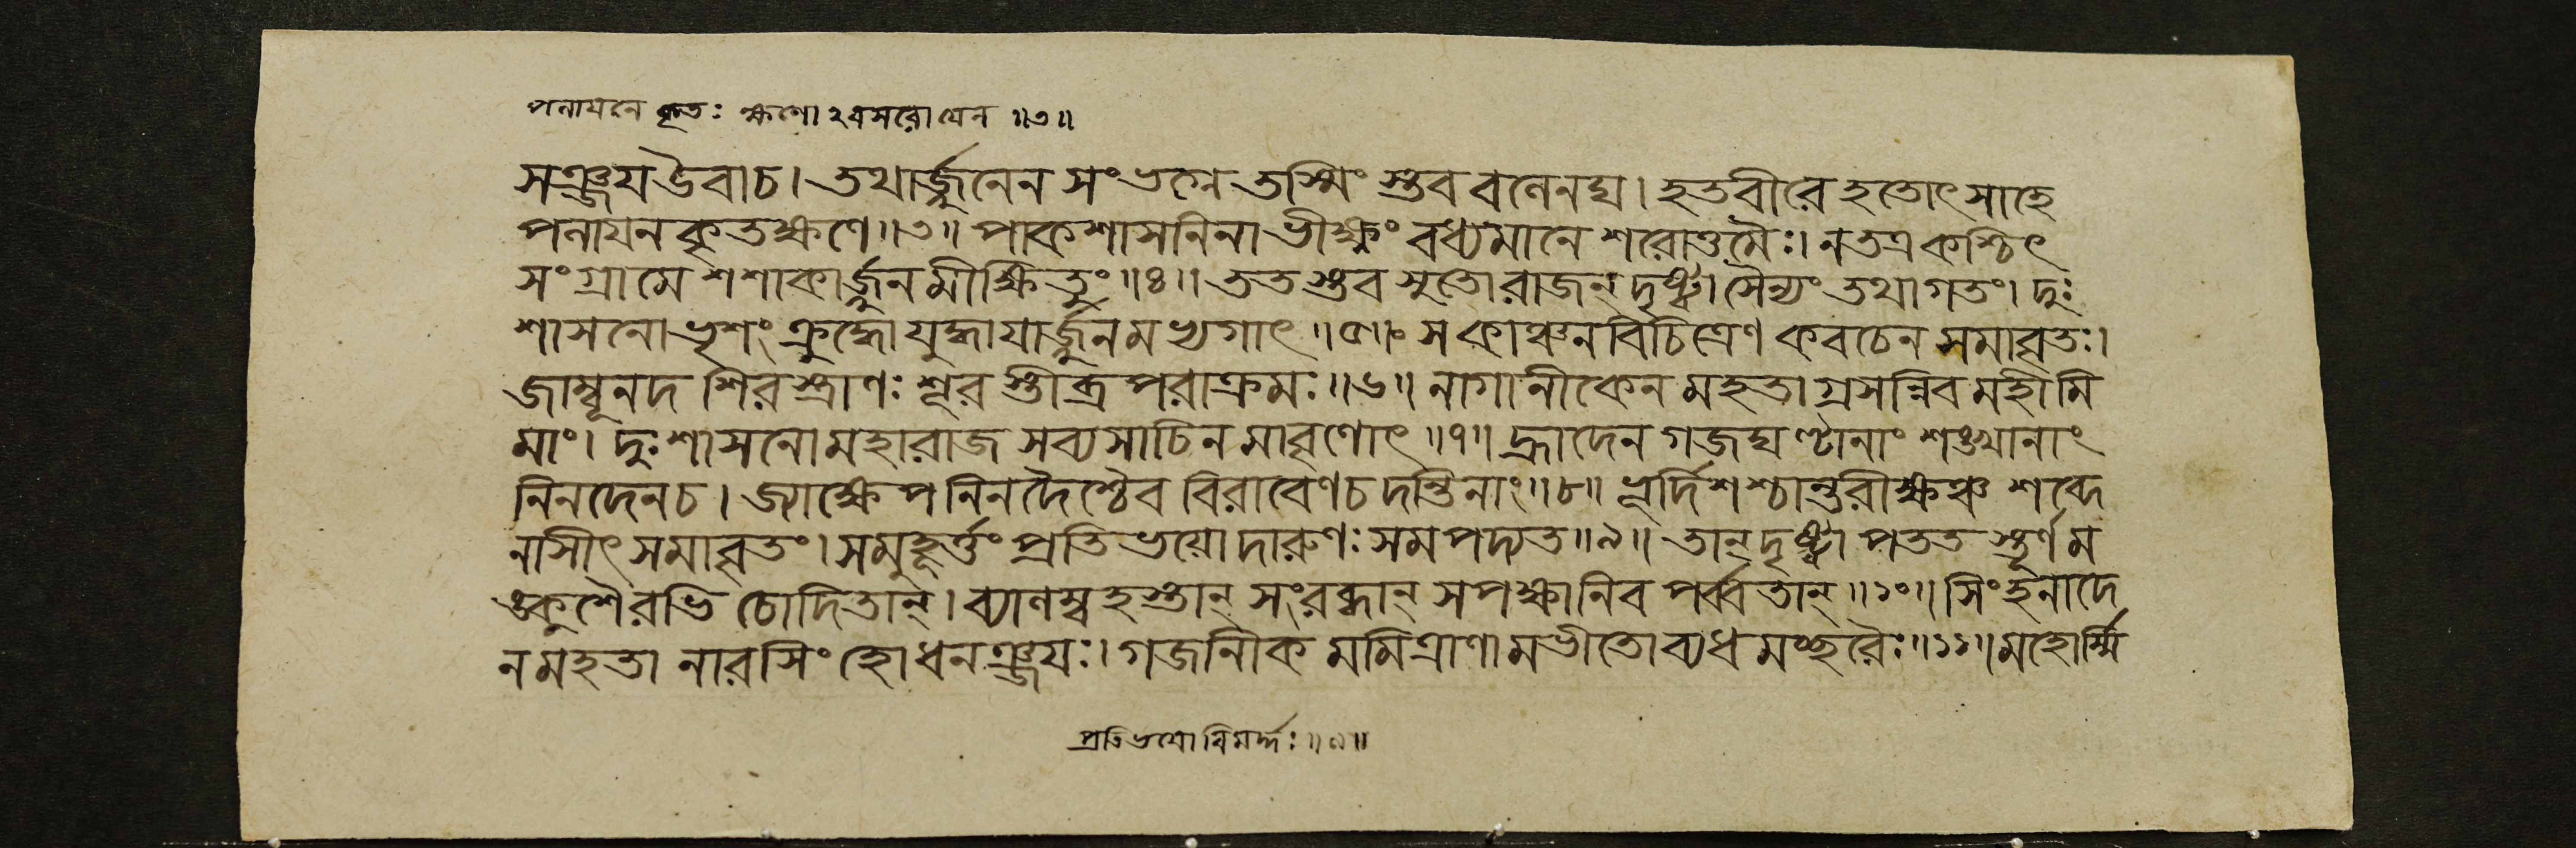 পলায়নে কৃতঃ ক্ষণোঽবসরো যেন ॥৩॥
সঞ্জয উবাচ। তথার্জ্জুনেন সংভগ্নে তস্মিং স্তব বলেনঘ। হতবীরে হতোৎসাহে
পলায়ন কৃতক্ষণে॥৩॥ পাকশাসনিনাভীক্ষ্ণং বধ্যমানে শরোত্তমৈঃ। নতত্র কশ্চিৎ
সংগ্রামে শশাকার্জ্জুনমীক্ষিতুং॥৪॥ তত স্তব সুতো রাজন্ দৃষ্ট্বা সৈন্যং তথাগতং। দুঃ
শাসনো ভৃশং ক্রুদ্ধো যুদ্ধাযার্জ্জুনমভ্যগাৎ॥৫॥ স কাঞ্চনবিচিত্রেণ কবচেন সমাবৃতঃ।
জাম্বূনদ শিরস্ত্রাণঃ শূর স্তীব্র পরাক্রমঃ॥৬॥ নাগানীকেন মহতা গ্রসন্নিব মহীমি
মাং। দুঃশাসনো মহারাজ সব্যসাচিনমাবৃণোৎ॥৭॥ হ্রাদেন গজঘণ্টানাং শঙ্খানাং
নিনদেনচ। জ্যাক্ষেপনিনদৈশ্চৈব বিরাবেণচ দন্তিনাং॥৮॥ ভূর্দিশশ্চান্তরীক্ষঞ্চ শব্দে
নাসীৎ সমাবৃতং। সমুহূর্ত্তং প্রতিভয়ো দারুণঃ সমপদ্যত॥৯॥ তান্ দৃষ্ট্বা পততস্তূর্ণম
ঙ্কুশৈরভি চোদিতান্। ব্যালম্বহস্তান্ সংরব্ধান্ সপক্ষানিব পর্ব্বতান্॥১০॥ সিংহনাদে
ন মহতা নারসিংহো ধনঞ্জযঃ। গজনীকমমিত্রাণামভীতো ব্যধমচ্ছরৈঃ॥১১॥ মহোর্ম্মি
প্রতিভযো বিমর্দ্দঃ॥৯॥